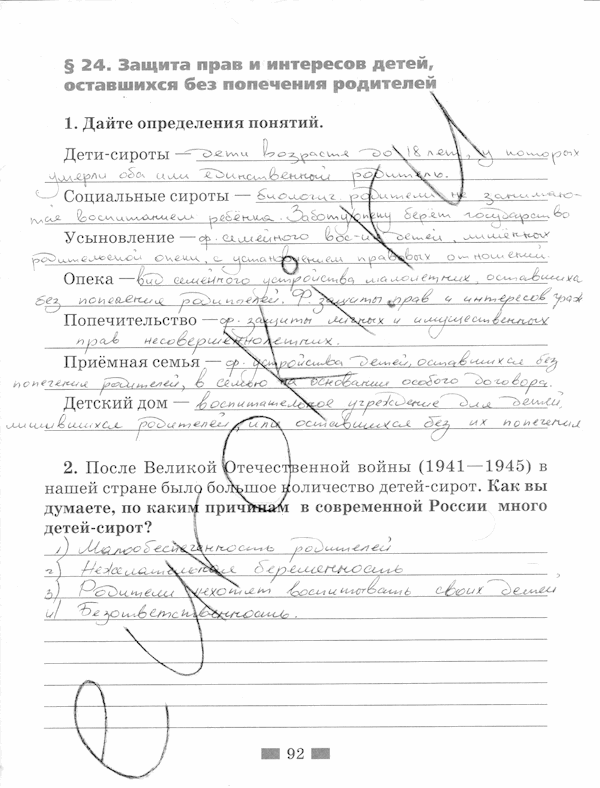 § 24. Защита прав и интересов детей,
оставшихся без попечения родителей
1. Дайте определения понятий.
Дети-сироты — дети возраста до 18 лет, у которых
умерли оба или единственный родитель.
Социальные сироты — биологич. родители не занимаю-
тся воспитанием ребёнка. Заботу, опеку берет государство
Усыновление — ф. семейного вос-ия детей, лишённых
родительской опеки, с установлением правовых отношений
Опека — вид семейного устройства малолетних, оставшихся
без попечения родителей. Ф. защиты прав и интересов граж
Попечительство — ф. защиты личных и имущественных
прав несовершеннолетних.
Приёмная семья — ф. устройства детей, оставшихся без
попечения родителей, в семью на основании особого договора.
Детский дом — воспитательное учреждение для детей
лишившихся родителей, или оставшихся без их попечения
2. После Великой Отечественной войны (1941—1945) в
нашей стране было большое количество детей-сирот. Как вы
думаете, по каким причинам в современной России много
детей-сирот?
1) Малообеспеченность родителей
2) Нежелательная беременность
3) Родители нехотят воспитывать своих детей
4) Безответственность.
92
euroki.ru